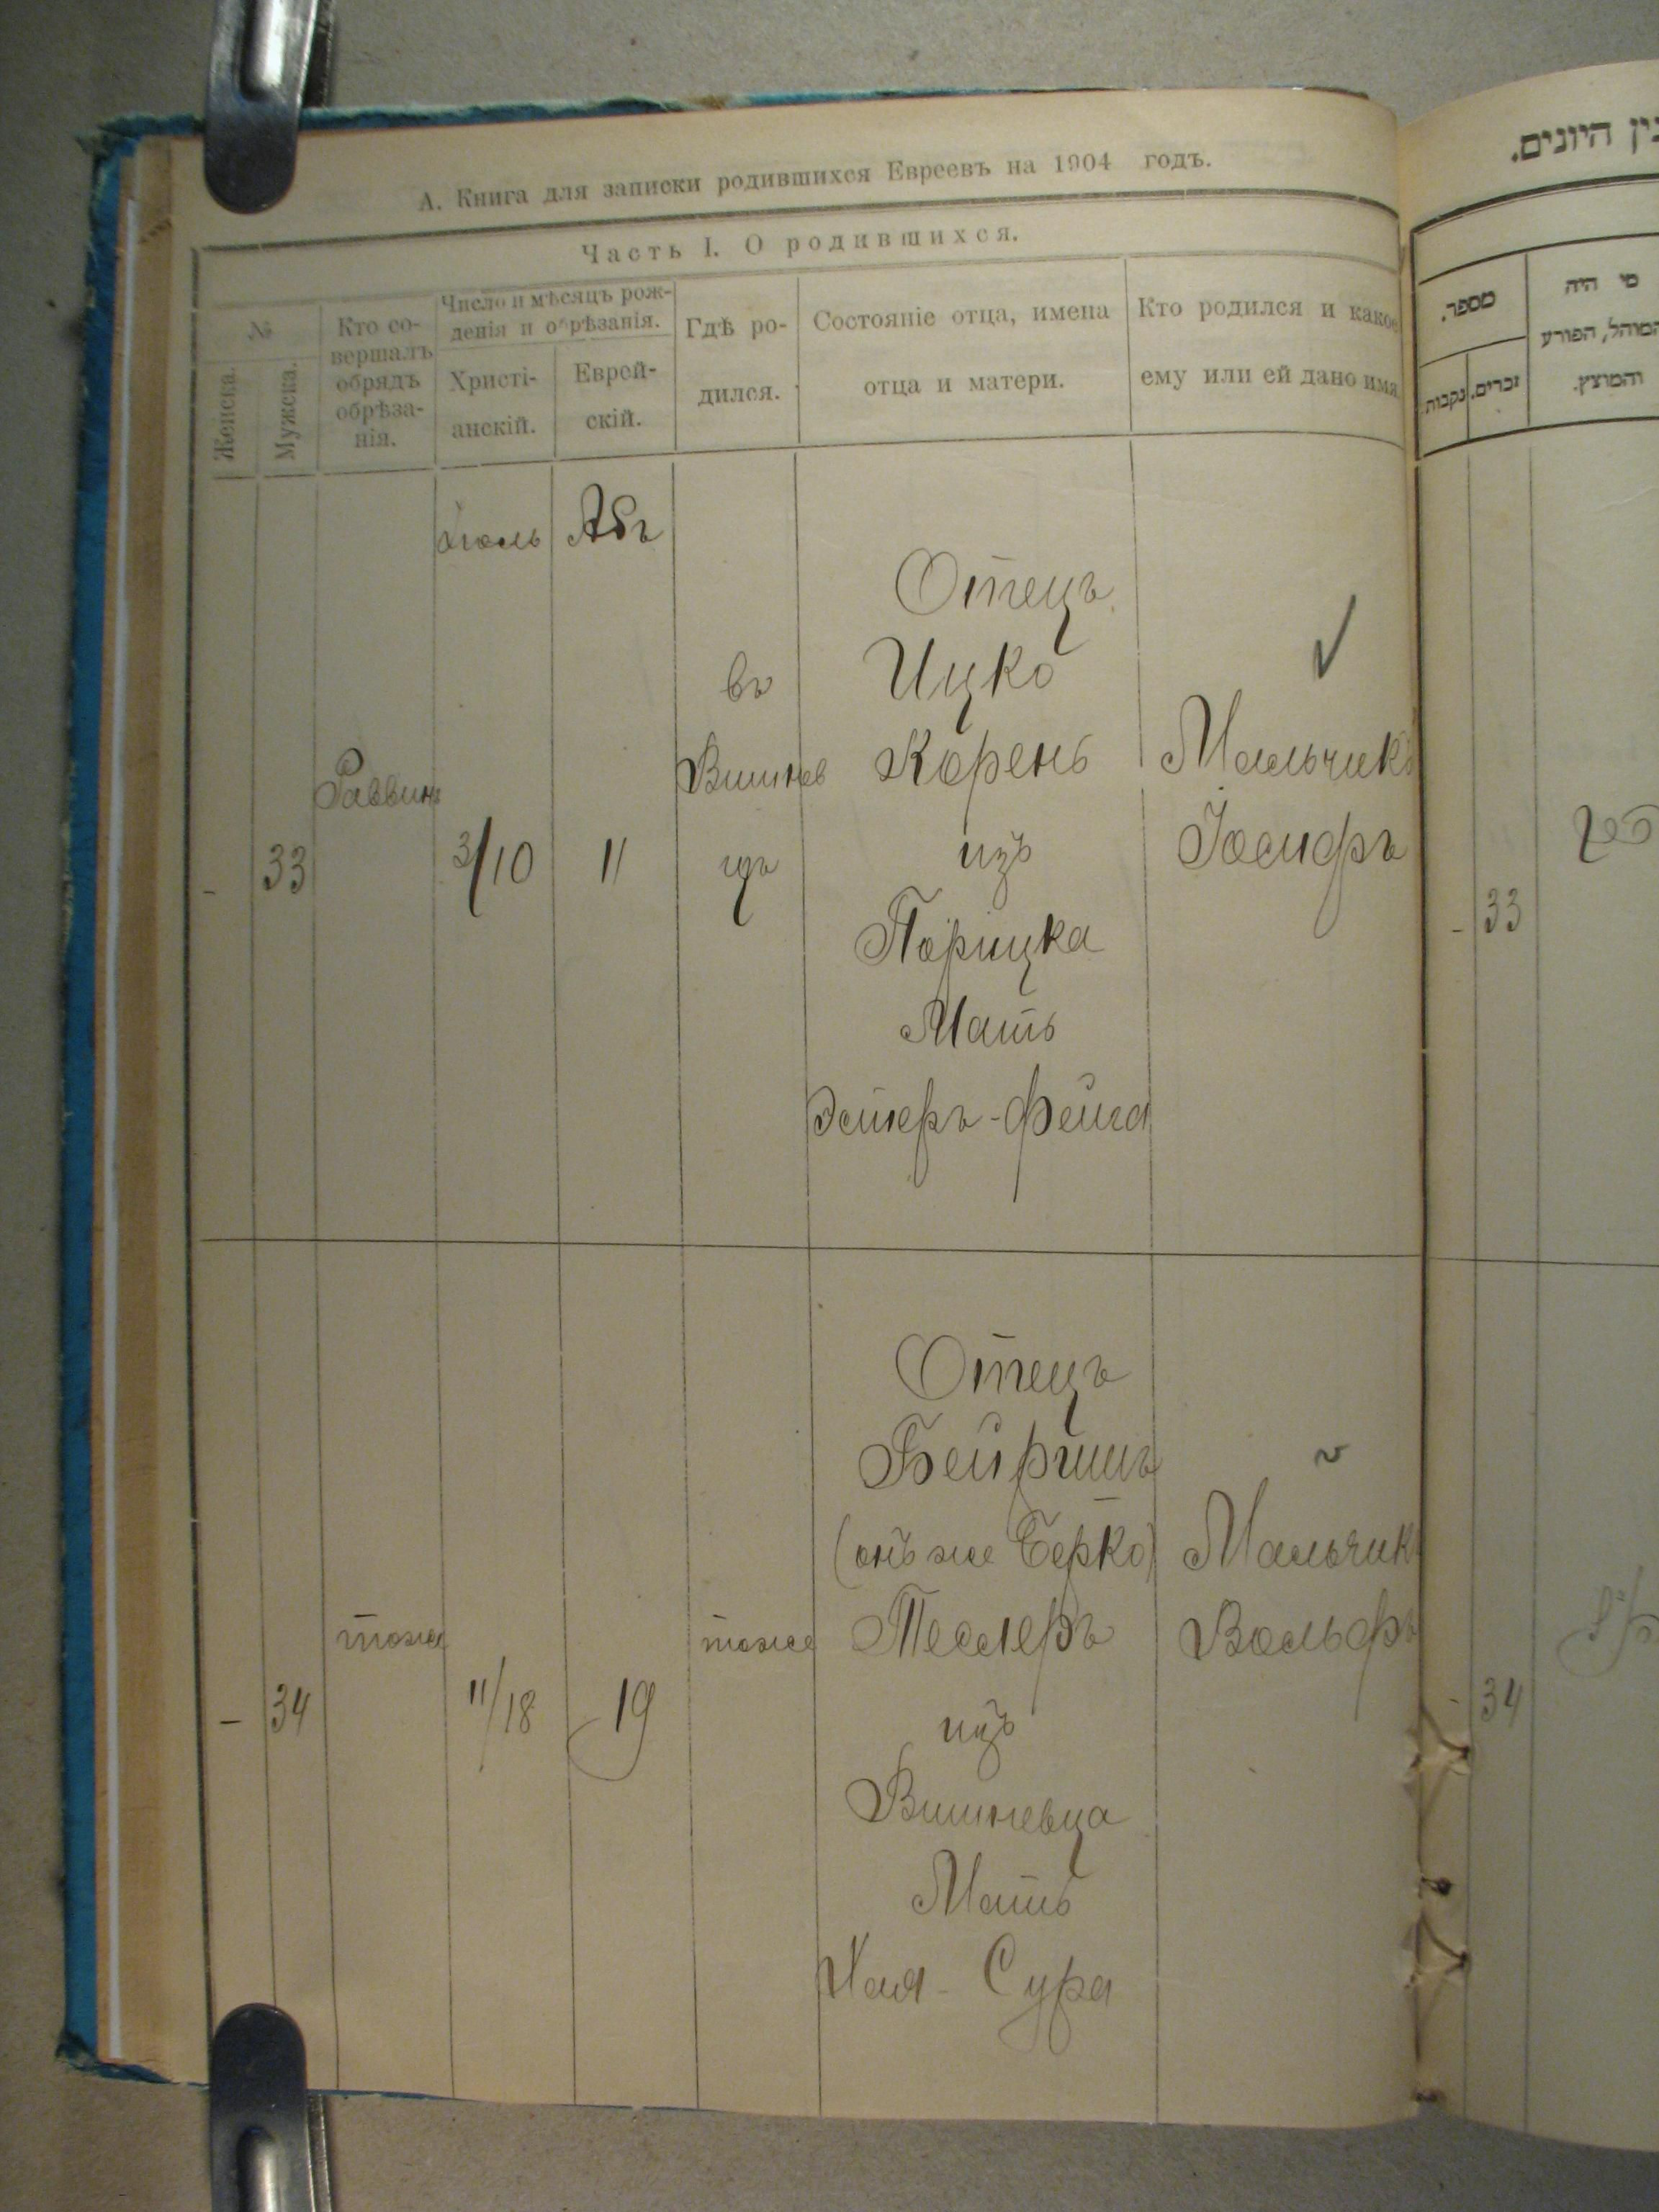 А. Книга для записки родившихся Евреевъ на 1904 годъ.
Часть I. О родившихся.
№
Женска.
Мужска.
Кто со-
вершалъ
обрядъ
обрѣза-
нія.
Число и мѣсяцъ рож-
денія и обрѣзанія.
Христі-
анскій.
Еврей-
скій.
Гдѣ ро-
дился.
Состояніе отца, имена
отца и матери.
Кто родился и какое
ему или ей дано имя
Іюль
Абъ
-
33
Раввинъ
3/10
11
въ
Вишнев
цѣ
Отецъ
Ицко
Корень
изъ
Порицка
Мать
Эстеръ-Фейга
Мальчикъ
Іосифъ
-
34
тоже
11/18
19
тоже
Отецъ
Бейришъ
(онъ же Берко)
Теслеръ
изъ
Вишневца
Мать
Хая-Сура
Мальчикъ
Вольфъ
היונים.
מספר.
נקבות.
זכרים.
מי היה
המוהל, הפורע
והמוצץ.
-
33
-
34